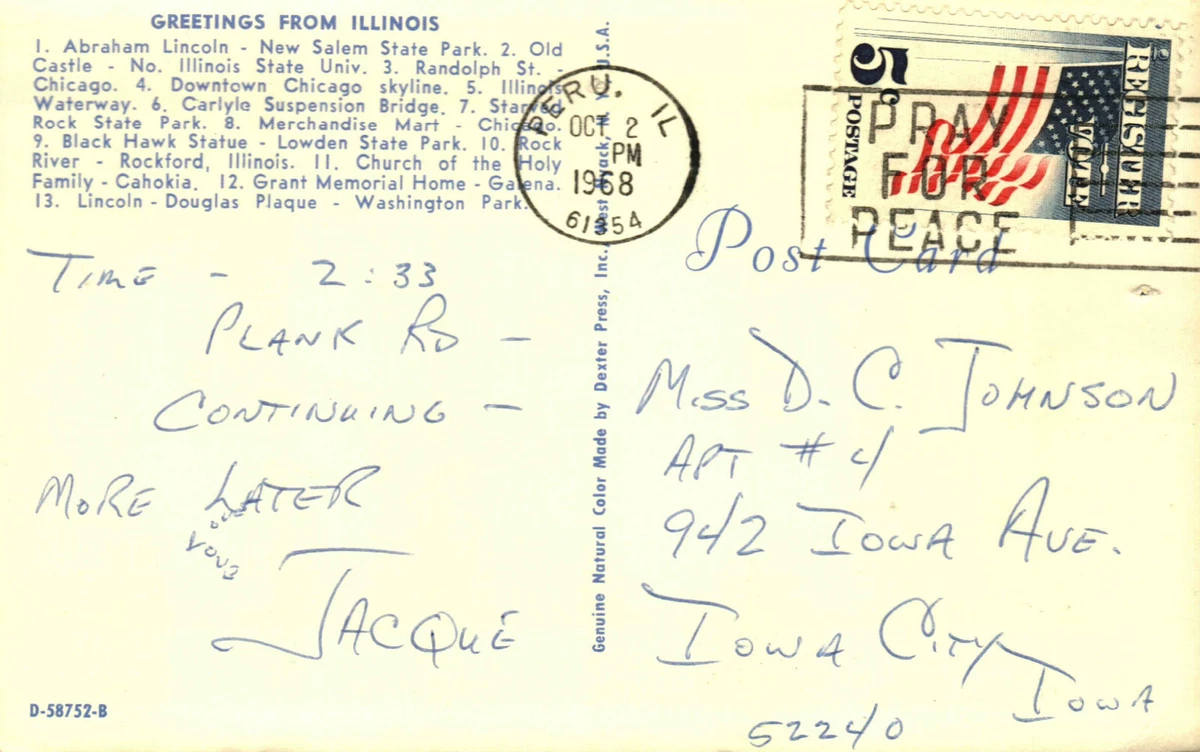 GREETINGS FROM ILLINOIS
1. Abraham Lincoln - New Salem State Park. 2. Old
Castle - No. Illinois State Univ. 3. Randolph St. -
Chicago. 4. Downtown Chicago skyline. 5. Illinois
Waterway. 6. Carlyle Suspension Bridge. 7. Starved
Rock State Park. 8. Merchandise Mart - Chicago.
9. Black Hawk Statue - Lowden State Park. 10. Rock
River - Rockford, Illinois. 11. Church of the Holy
Family - Cahokia. 12. Grant Memorial Home - Galena.
13. Lincoln - Douglas Plaque - Washington Park.
TIME - 2:33
PLANK RD -
CONTINUING -
MORE LATER
LOVE
JACQUE
D-58752-B
Genuine Natural Color Made by Dexter Press, Inc. West Nyack, N. Y. U.S.A.
PERU. IL
OCT 2
PM
1968
61354
PRAY
FOR
PEACE
5c
POSTAGE
REGISTER
VOTE
Post Card
MISS D. C. JOHNSON
APT #4
942 IOWA AVE.
IOWA CITY
IOWA
52240